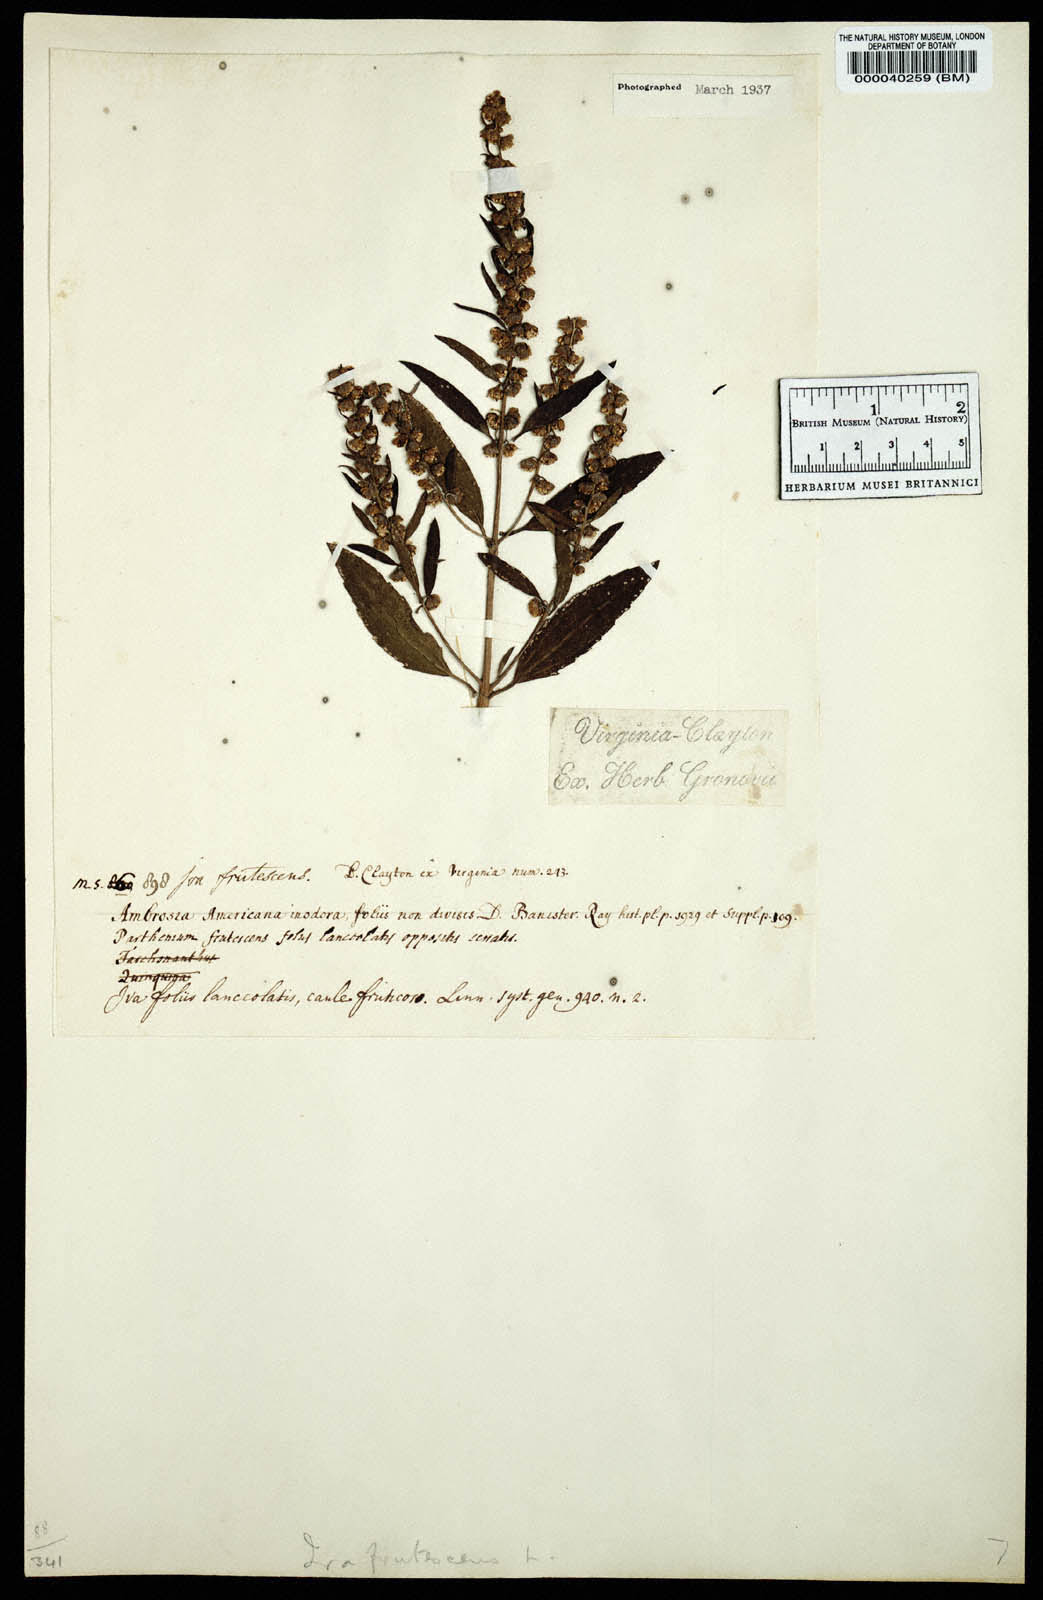 THE NATURAL HISTORY MUSEUM, LONDON
DEPARTMENT OF BOTANY
000040259 (BM)
Photographed March 1937
1 2
BRITISH MUSEUM (NATURAL HISTORY)
1 2 3 4 5
HERBARIUM MUSEI BRITANNICI
Virginia-Clayton
Ex. Herb Gronovii
m.s. 898 Iva frutescens. D. Clayton ex Virginia num. 243.
Ambrosia Americana inodora, foliis non divisis D. Banister. Ray hist. pl. p. 1929 et Suppl. p. 109.
Parthenium frutescens foliis lanceolatis oppositis serratis.
Tarchonanthus
Iva foliis lanceolatis, caule fruticoso. Linn. syst. gen. 940. n. 2.
88
341
Iva frutescens L.
7